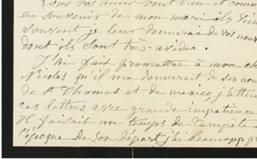 Vous vous aimer tout bien et comm
en souvenir de mon mari et
souvent je leur donnerai de vos nouv
dont ils sont très avides.
J'ai fait promettre à mon ch
Nicolas qu'il me donnerait de ses nou
de St Thomas et de j'atten
ces lettres avec grande impatience
Il faisait un temps de tempête
l'époque de son départ j'ai beaucoup